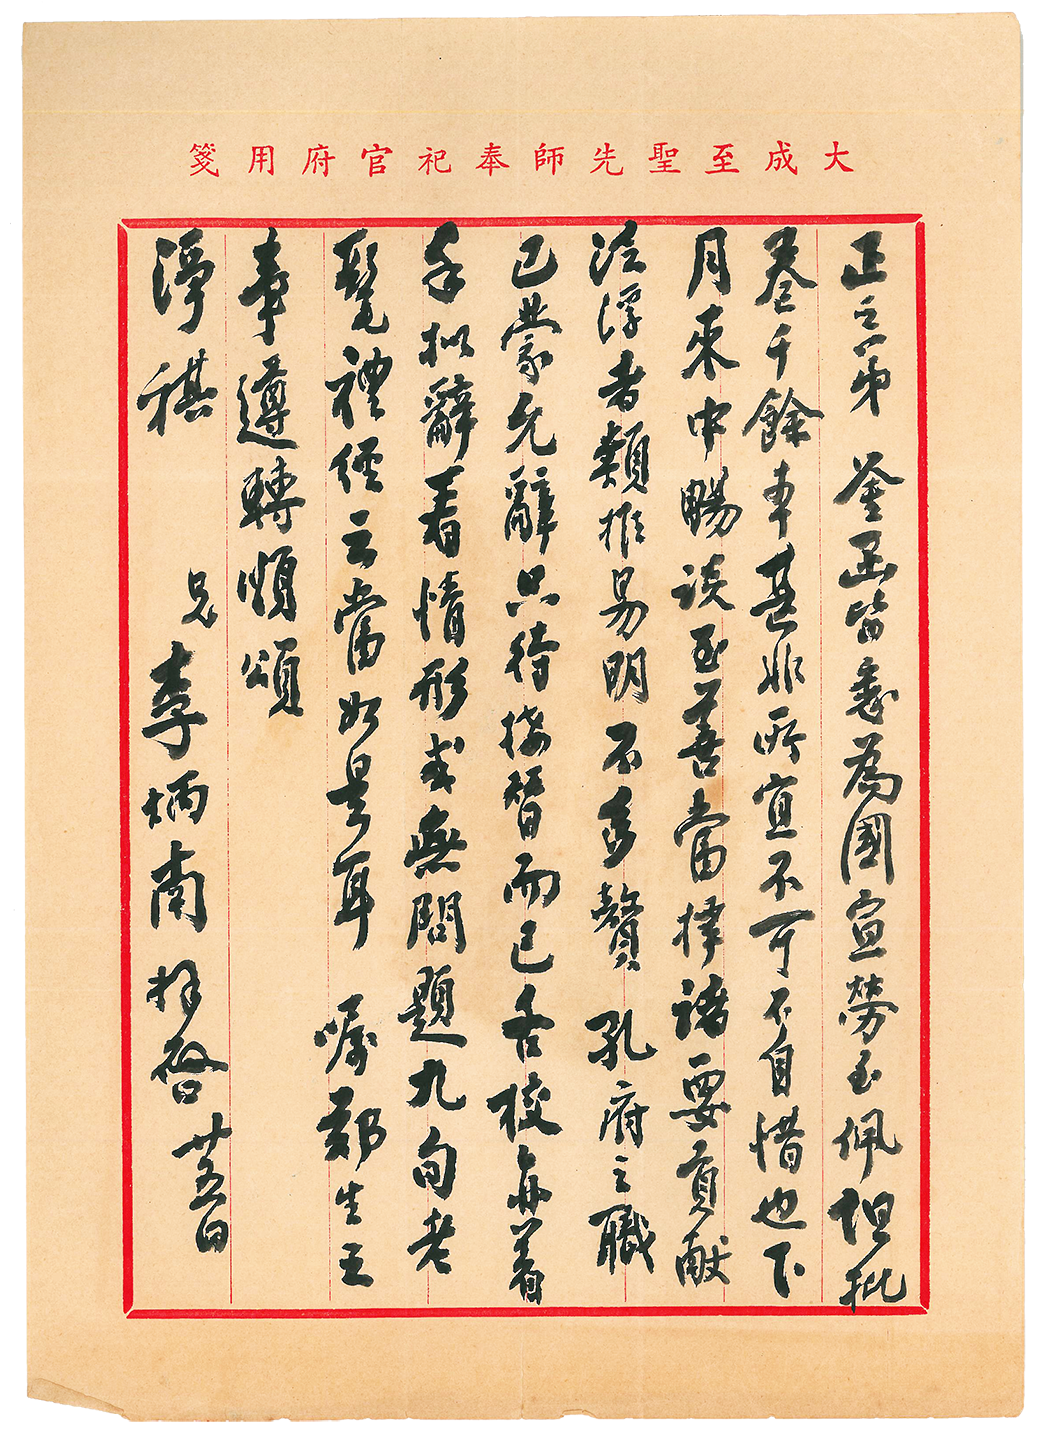 大成至聖先師奉祀官府用箋
正之弟 釜函皆悉為國宣勞至佩但批
卷千餘本甚非所宜不可不自惜也下
月來中暢談至善當擇諸要貢獻
泛浮者類推易明不多贅 孔府之職
已蒙允辭只待接替而已各校亦着
手擬辭看情形或無問題九旬老
髦禮經云當如是耳 囑鄭生王
事遵轉順頌
淨祺
兄 李炳南 拜啓 廿五日